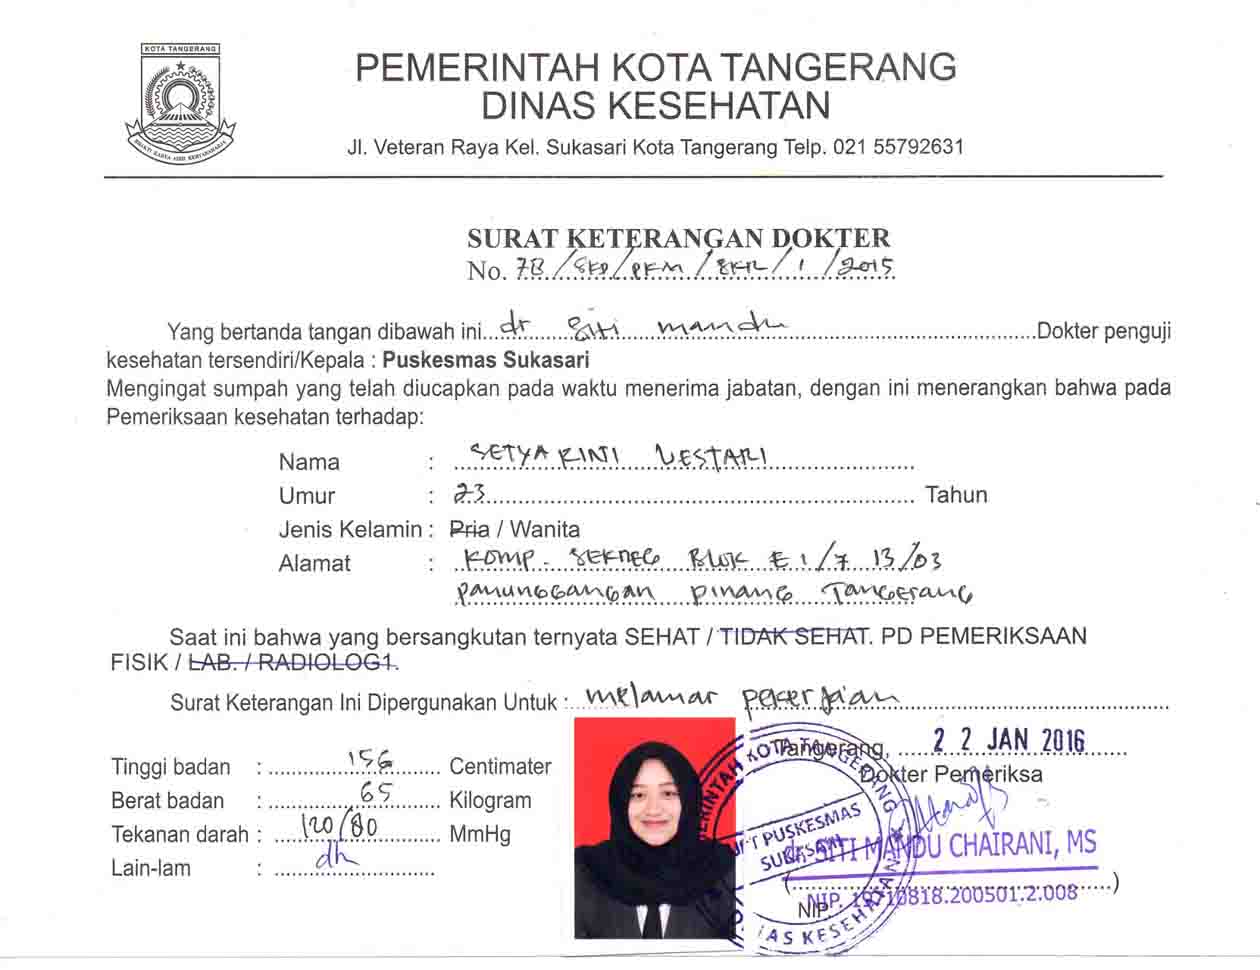 KOTA TANGERANG
BHAKTI KARYA ADHI KERTARAHARJA
PEMERINTAH KOTA TANGERANG
DINAS KESEHATAN
Jl. Veteran Raya Kel. Sukasari Kota Tangerang Telp. 021 55792631
SURAT KETERANGAN DOKTER
No. 7B/SKD/PKM/SKR/1/2015
Yang bertanda tangan dibawah ini dr Siti mandu Dokter penguji
kesehatan tersendiri/Kepala : Puskesmas Sukasari
Mengingat sumpah yang telah diucapkan pada waktu menerima jabatan, dengan ini menerangkan bahwa pada
Pemeriksaan kesehatan terhadap:
Nama : SETYARINI LESTARI
Umur : 23 Tahun
Jenis Kelamin : Pria / Wanita
Alamat : KOMP. SEKNEG BLOK E 1/7 13/03
panunggangan pinang Tangerang
Saat ini bahwa yang bersangkutan ternyata SEHAT / TIDAK SEHAT. PD PEMERIKSAAN
FISIK / LAB. / RADIOLOG1.
Surat Keterangan Ini Dipergunakan Untuk : melamar pekerjaan
Tangerang, 22 JAN 2016
Dokter Pemeriksa
Tinggi badan : 156 Centimater
Berat badan : 65 Kilogram
Tekanan darah : 120/80 MmHg
Lain-lam :
PEMERINTAH KOTA TANGERANG
UPT PUSKESMAS
SUKASARI
DINAS KESEHATAN
dr. SITI MANDU CHAIRANI, MS
NIP. 19710818.200501.2.008
NIP.